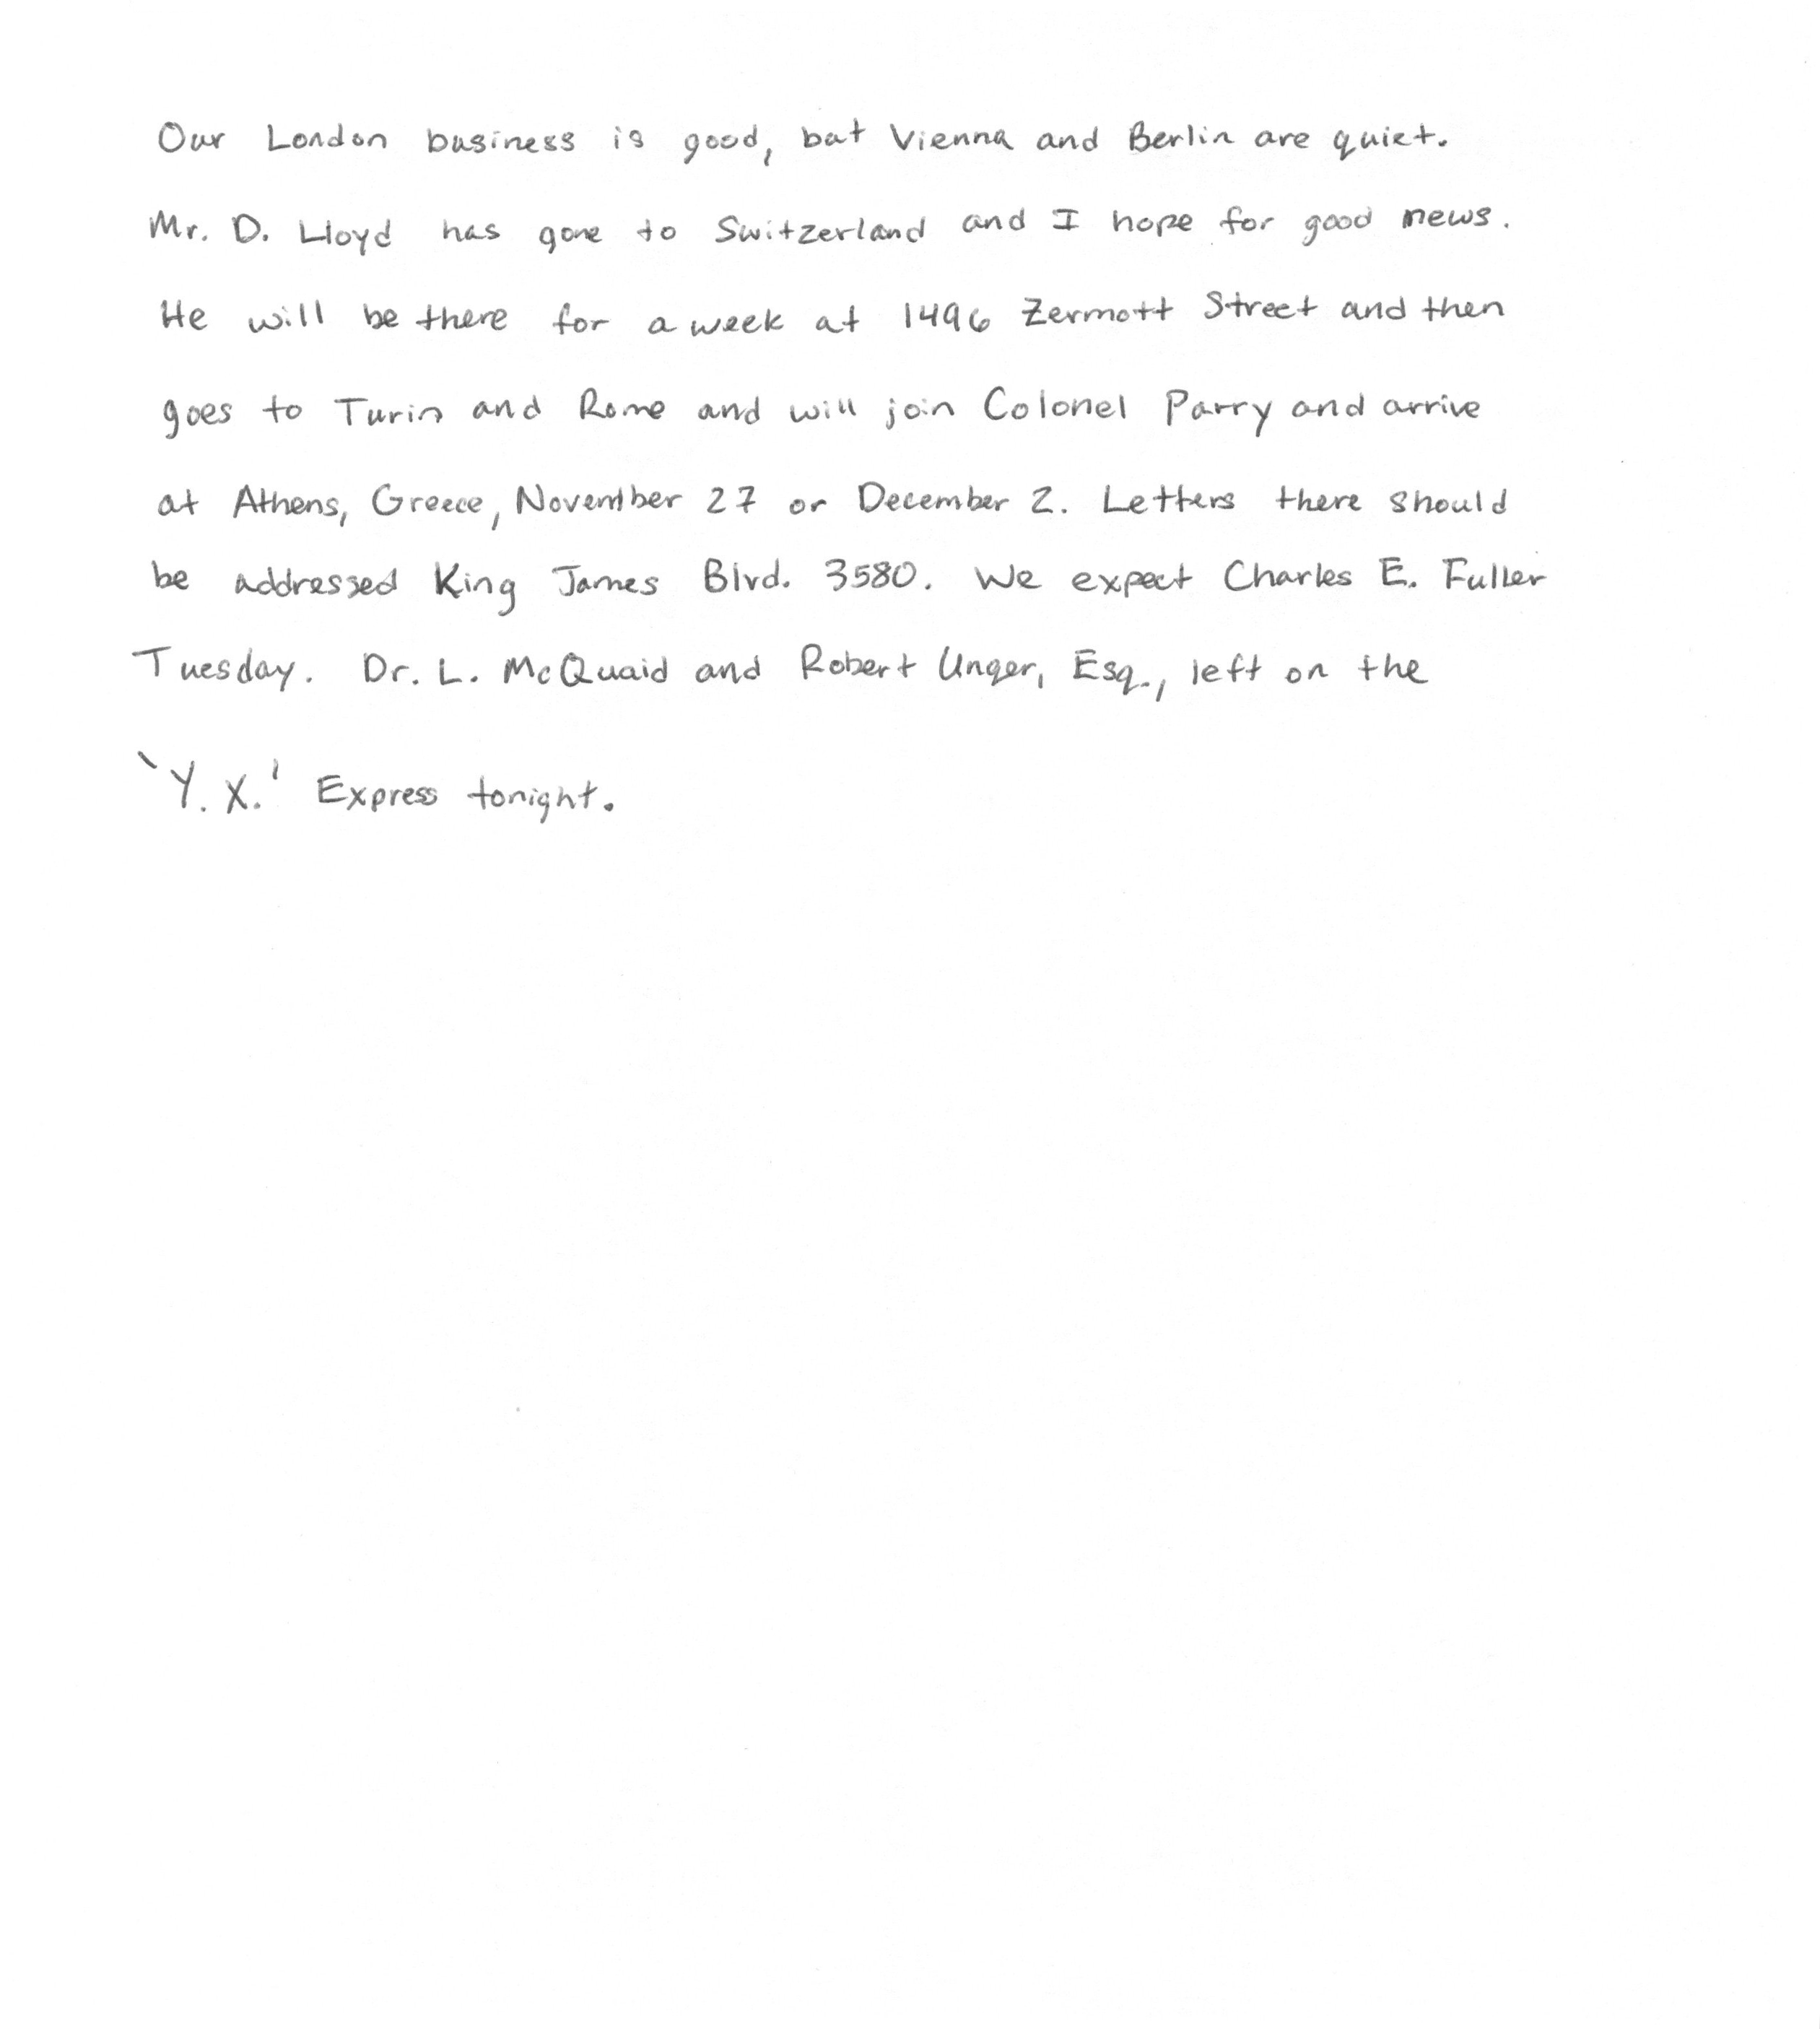 Our London business is good, but Vienna and Berlin are quiet.
Mr. D. Lloyd has gone to Switzerland and I hope for good news.
He will be there for a week at 1496 Zermott Street and then
goes to Turin and Rome and will join Colonel Parry and arrive
at Athens, Greece, November 27 or December 2. Letters there should
be addressed King James Blvd. 3580. We expect Charles E. Fuller
Tuesday. Dr. L. McQuaid and Robert Unger, Esq., left on the
'Y. X.' Express tonight.